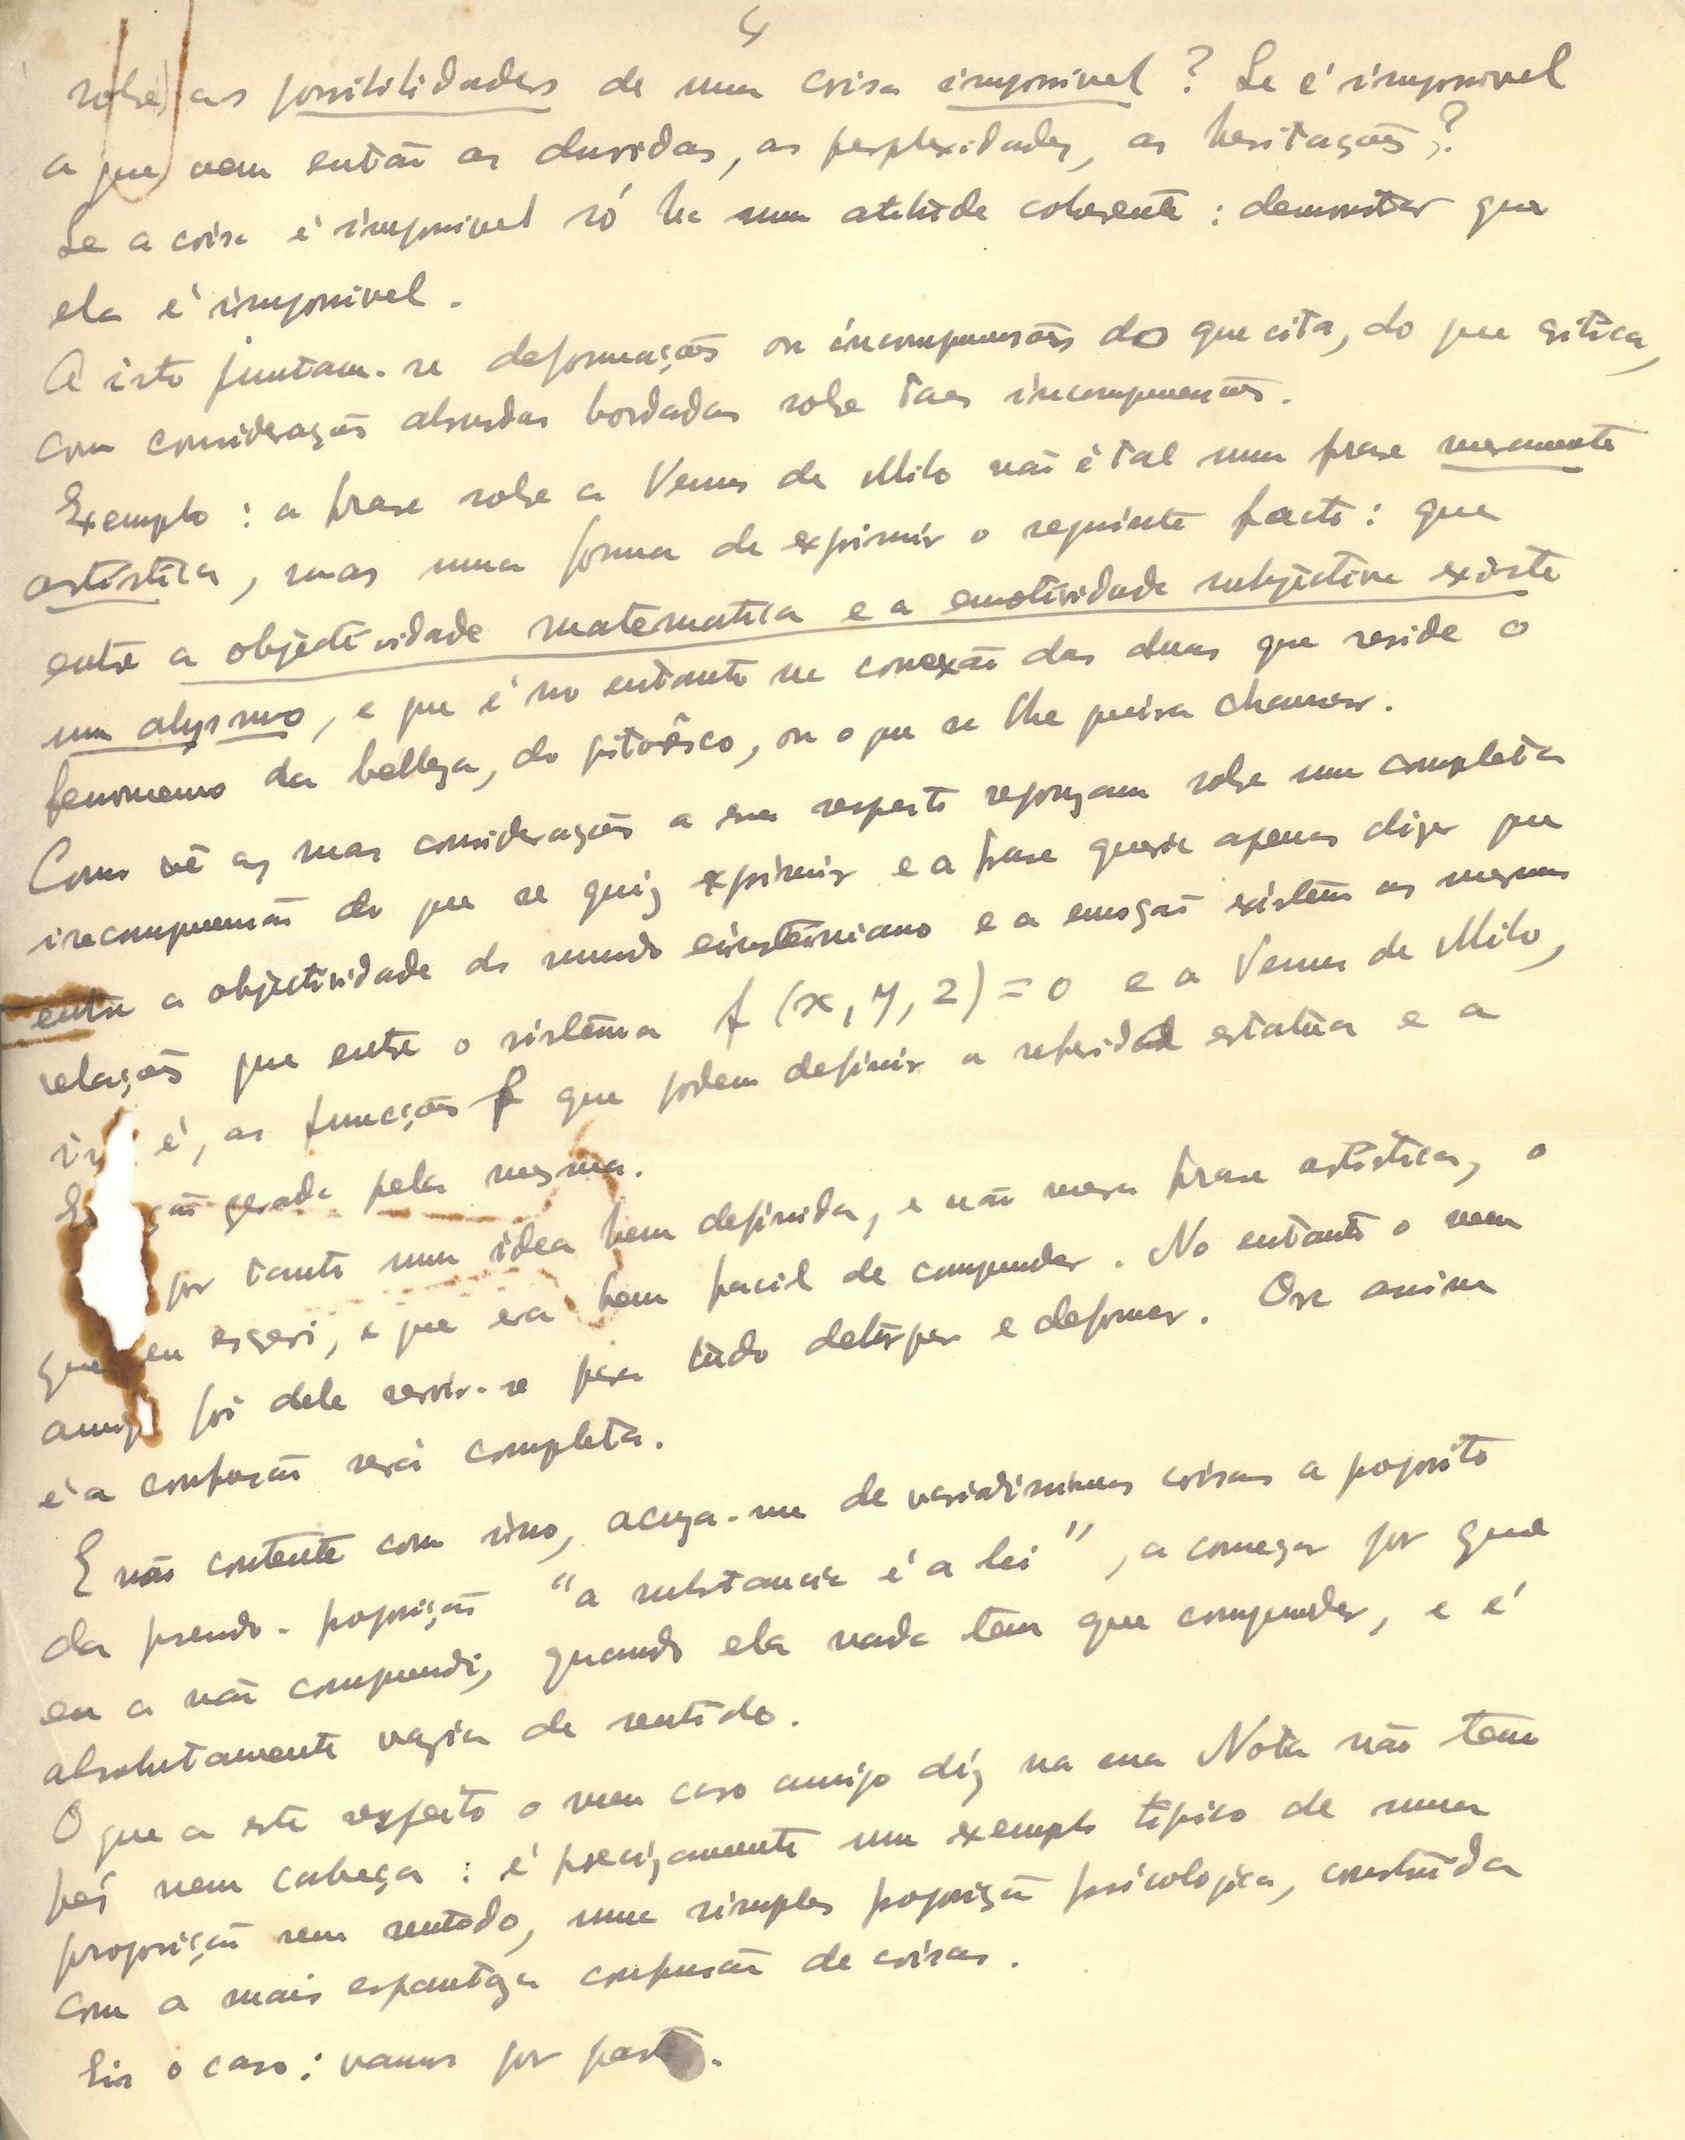 4
sobre as possibilidades de uma coisa impossivel ? Se é impossivel
a que vem então as duvidas, as perplexidades, as hesitações ?
Se a coisa é impossivel só ha uma atitude coherente : demonstrar que
ela é impossivel .
A isto juntam-se deformações ou incompreensões do que cita, do que critica,
com considerações absurdas bordadas sobre taes incompreensões.
Exemplo : a frase sobre a Venus de Milo não é tal uma frase meramente
artistica, mas uma forma de exprimir o seguinte facto : que
entre a objectividade matematica e a emotividade subjectiva existe
um abysmo, e que é no entanto na conexão das duas que reside o
fenomeno da belleza, do pitorêsco, ou o que se lhe queira chamar.
Como vê as suas considerações a esse respeito repousam sobre uma completa
incompreensão do que se quiz exprimir e a frase queria apenas dizer que
entre a objectividade do mundo einsteiniano e a emoção existem as mesmas
relações que entre o sistêma f (x, y, z) = 0 e a Venus de Milo,
é, as funcções f que podem definir a referida estatua e a
gerada pela mesma.
por tanto uma idea bem definida, e não mera frase artistica, o
que eu escrevi, e que era bem facil de compreender . No entanto o meu
amigo foi dele servir-se para tudo deturpar e deformar. Ora assim
é a confusão será completa.
E não contente com isso, acuza-me de variadissimas coisas a proposito
da pseudo-proposição “a substancia é a lei”, a começar por que
eu a não compreendi, quando ela nada tem que compreender, e é
absolutamente vazia de sentido.
O que a este respeito o meu caro amigo diz na sua Nota não tem
pés nem cabeça : é precizamente um exemplo tipico de uma
proposição sem sentido, uma simples proposição psicologica, construida
com a mais espantoza confusão de coisas.
Eis o caso : vamos por partes.